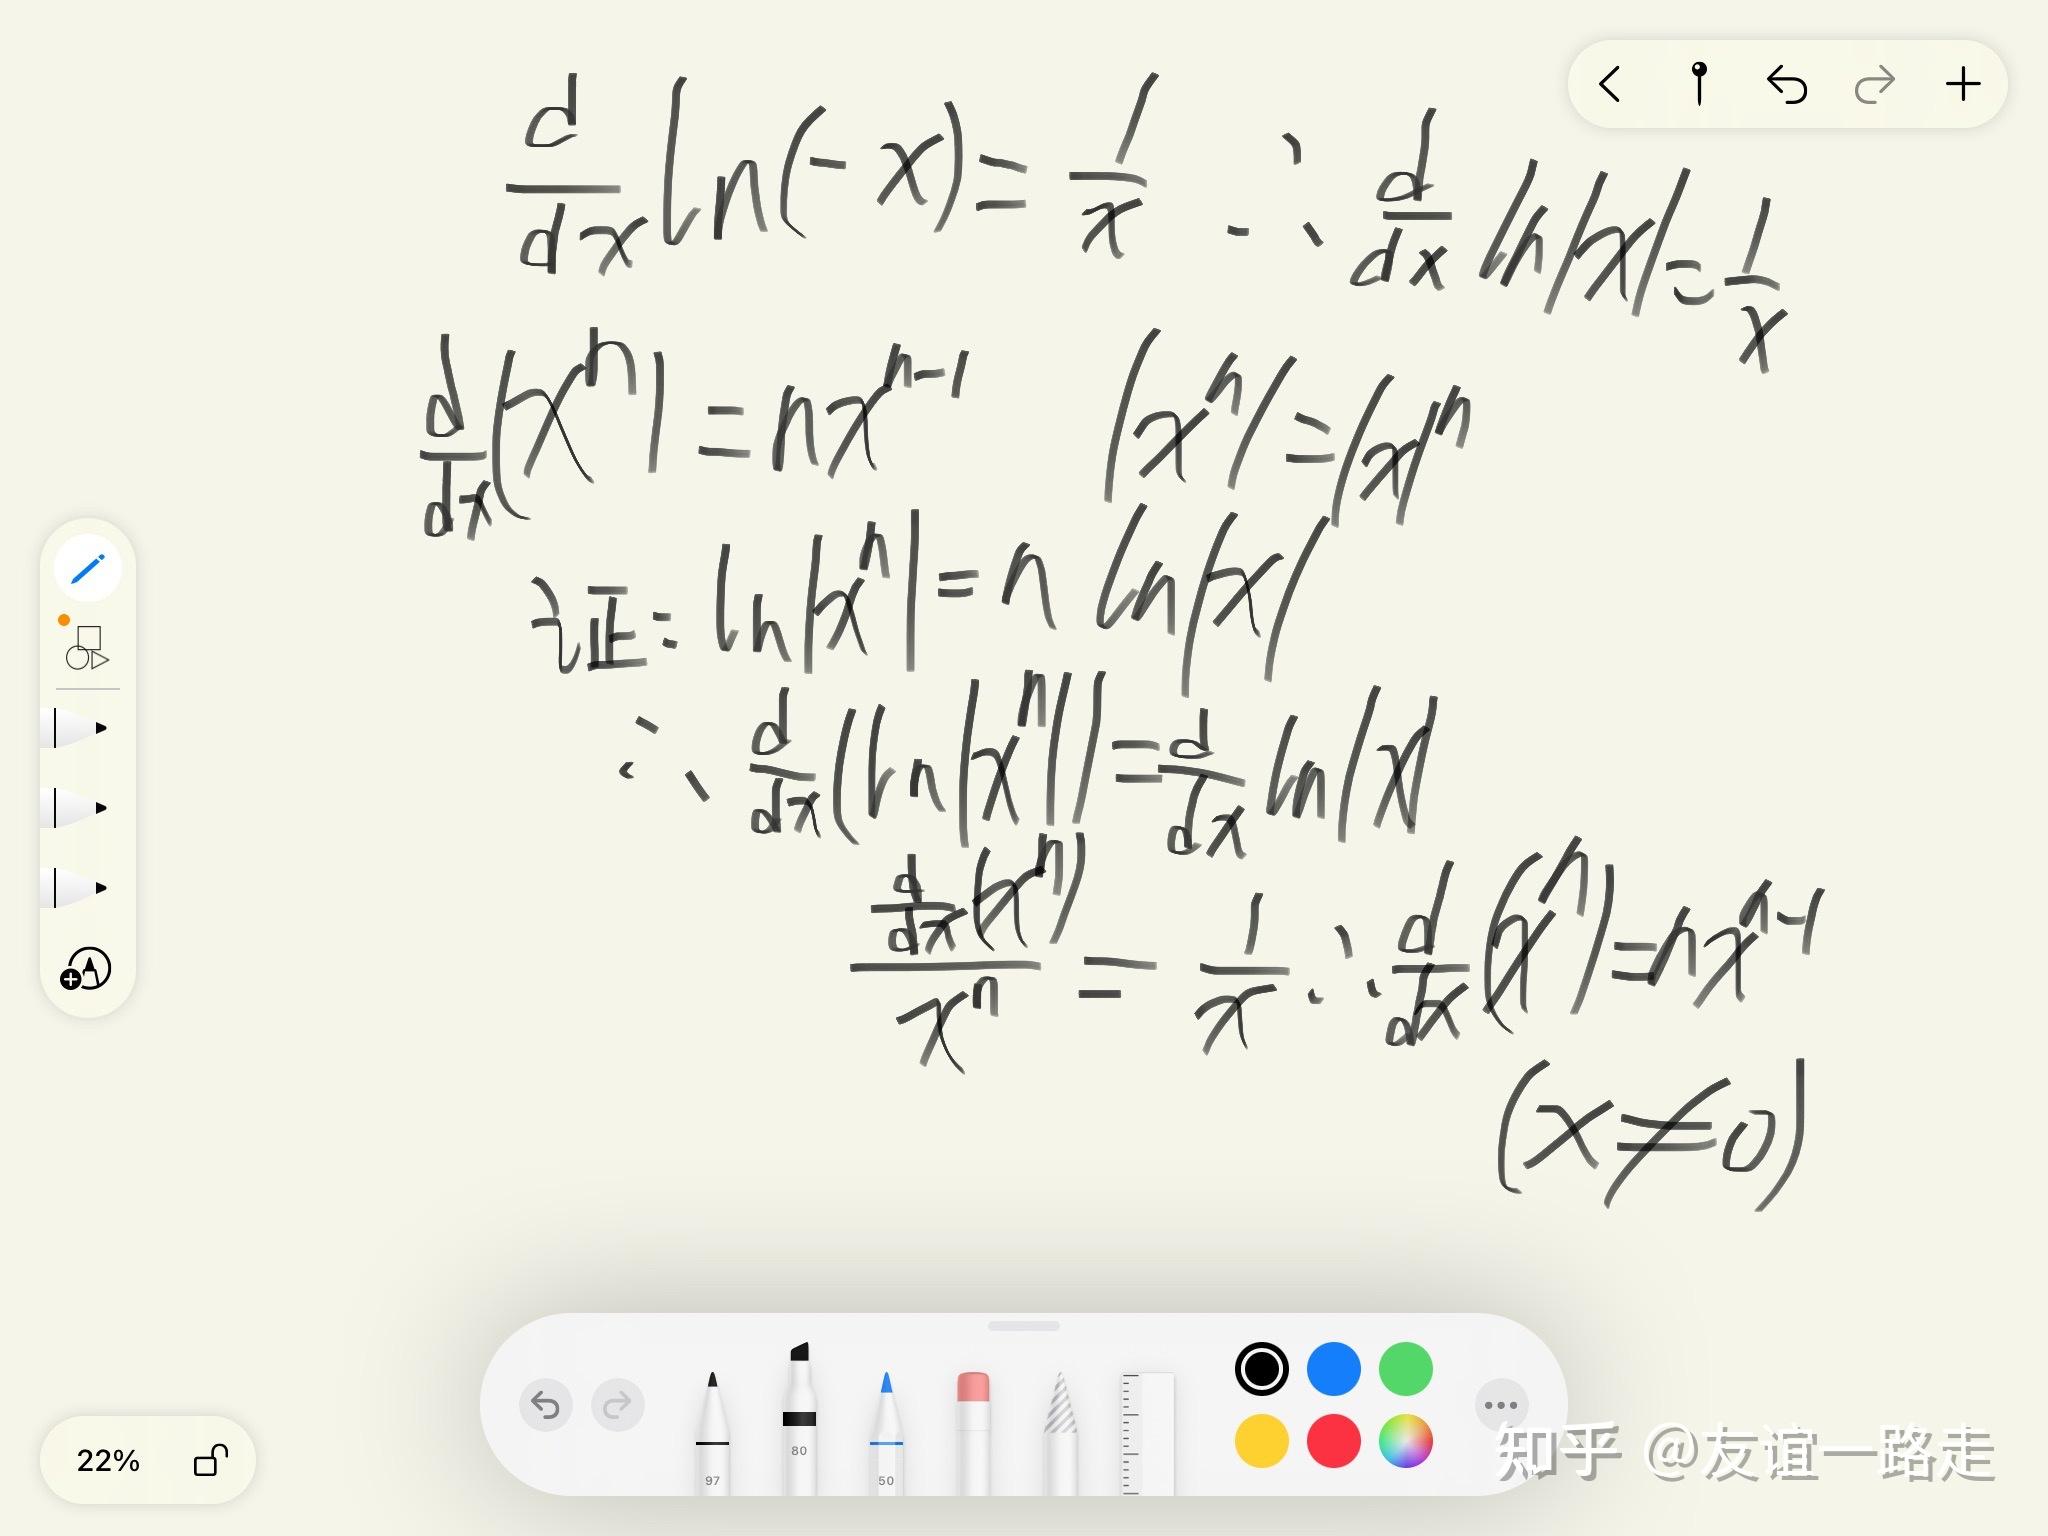 d/dx ln(-x) = 1/x ∴ d/dx ln|x| = 1/x
d/dx (x^n) = nx^{n-1} |x^n| = |x|^n
证: ln|x^n| = n ln|x|
∴ d/dx (ln|x^n|) = d/dx ln|x|
d/dx (x^n) / x^n = 1/x ∴ d/dx (x^n) = nx^{n-1}
(x≠0)
97
80
50
22%
知乎 @友谊一路走